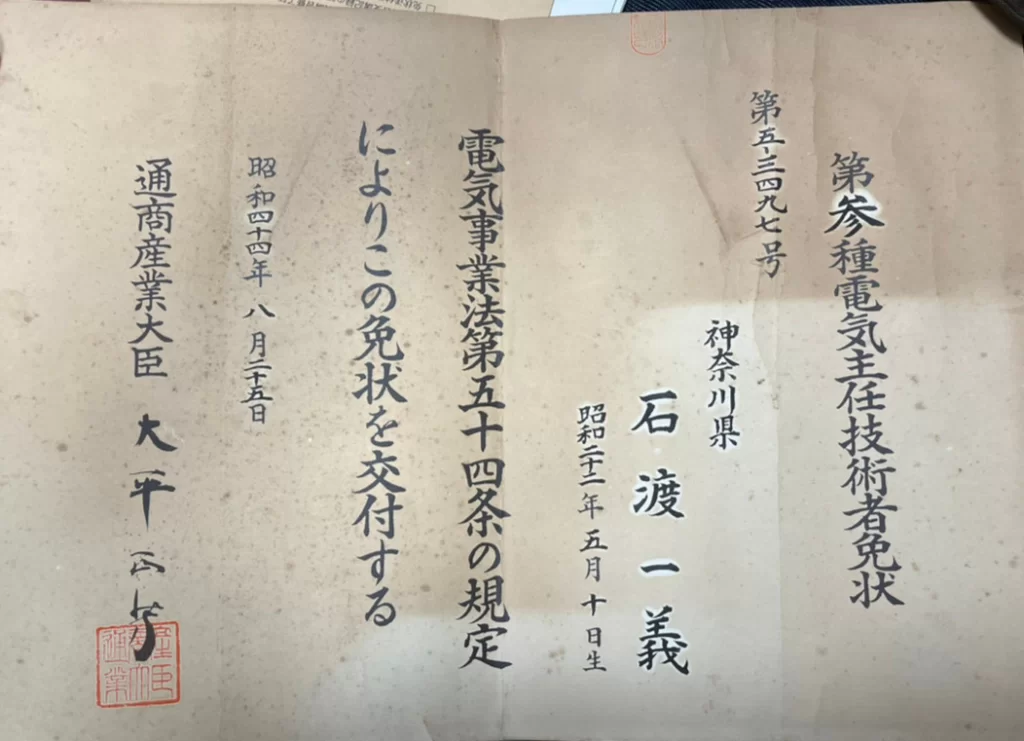 第参種電気主任技術者免状
第五-三四九七号
神奈川県
石渡一義
昭和二十二年五月十日生
電気事業法第五十四条の規定
によりこの免状を交付する
昭和四十四年八月二十五日
通商産業大臣 大平正芳